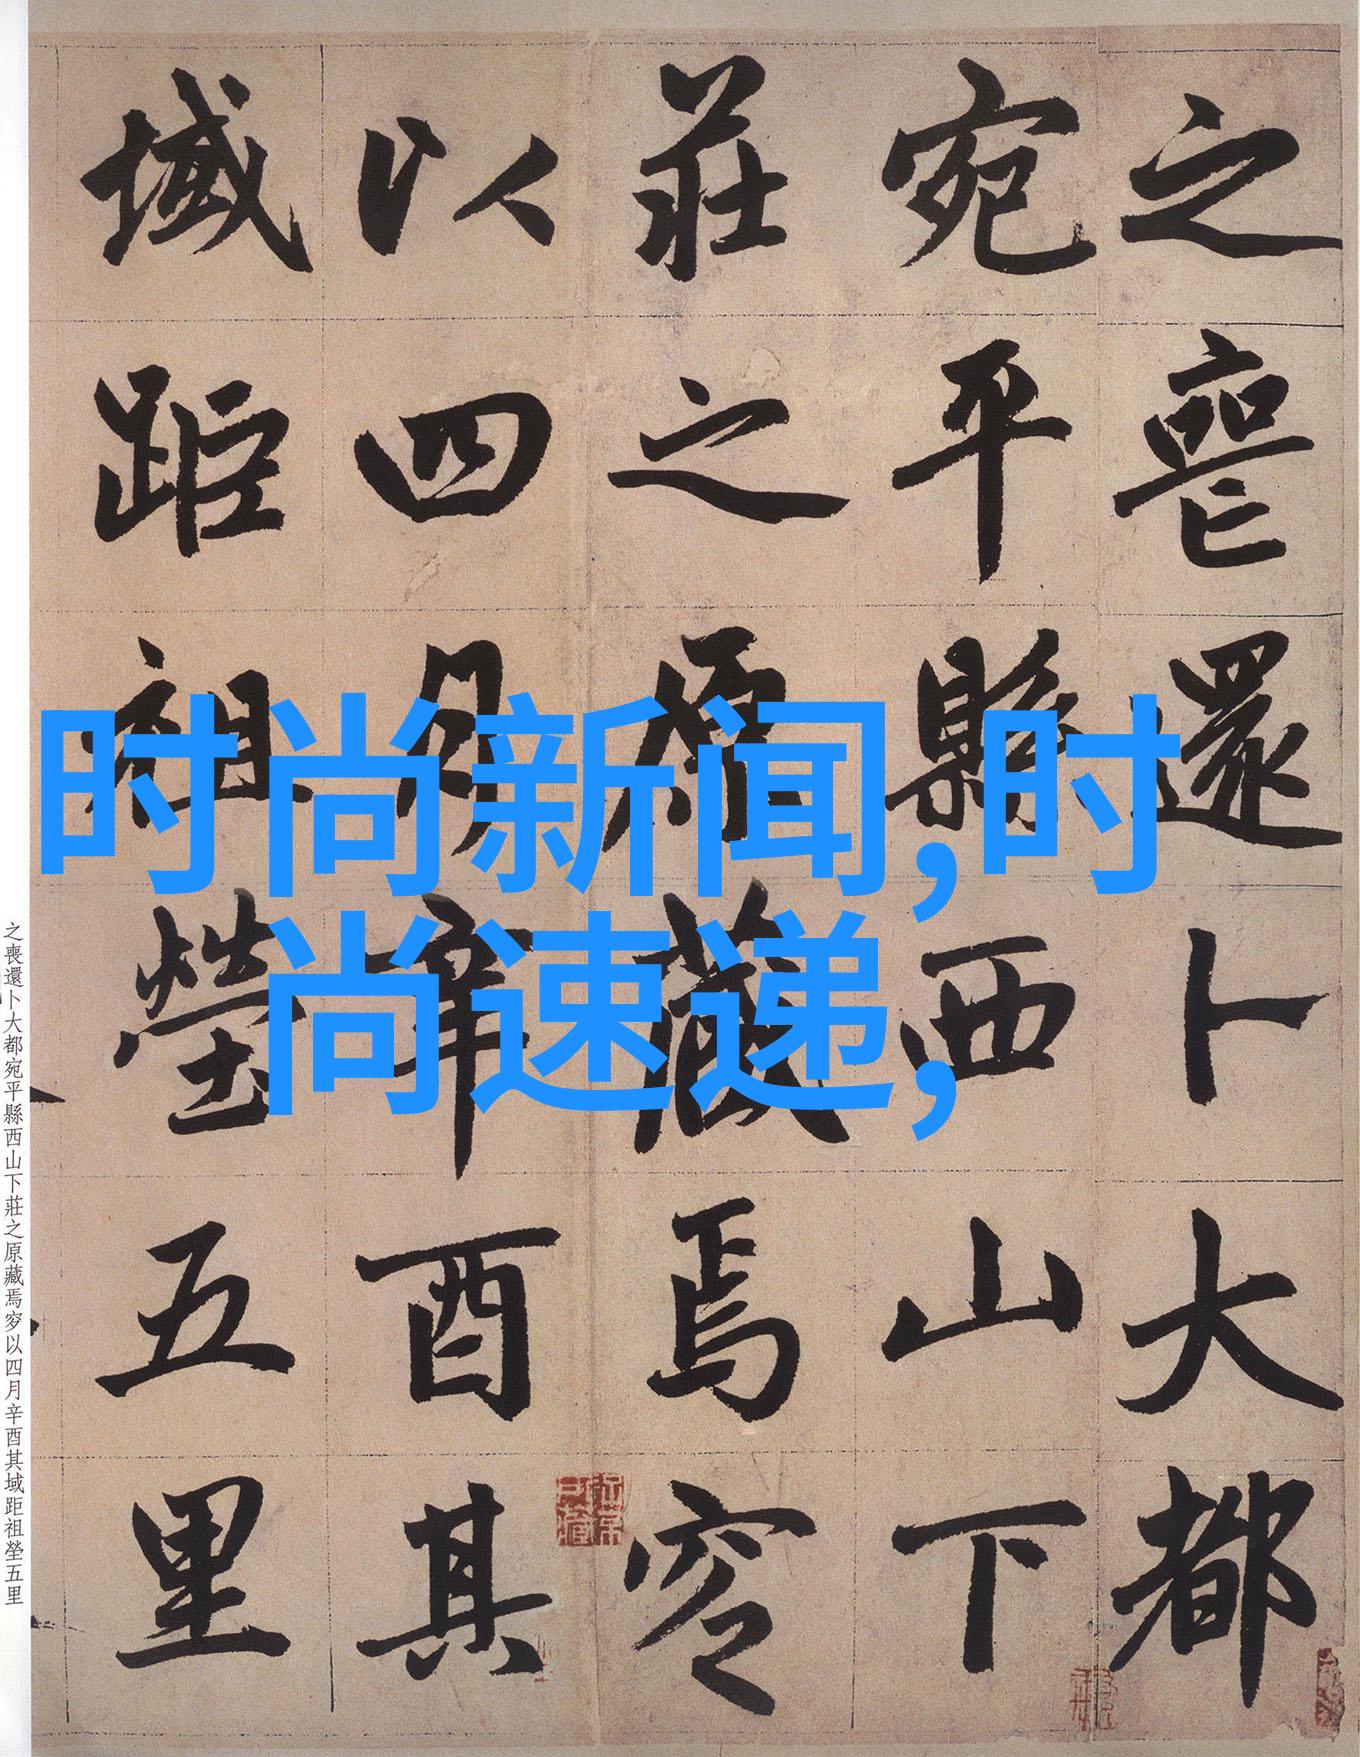 之喪還卜大都
宛平縣西山下
莊之原藏焉穸
以四月辛酉其
域距祖塋五里
时尚新闻,时
尚速递,
之喪還卜大都宛平縣西山下莊之原藏焉穸以四月辛酉其域距祖塋五里